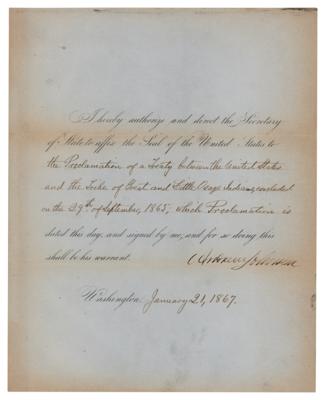 I hereby authorize and direct the Secretary
of State to affix the Seal of the United States to
the Proclamation of a Treaty between the United States
and the Tribe of Great and Little Osage Indians, concluded
on the 29th of September, 1865, which Proclamation is
dated this day, and signed by me, and for so doing this
shall be his warrant.
Andrew Johnson
Washington, January 21, 1867.